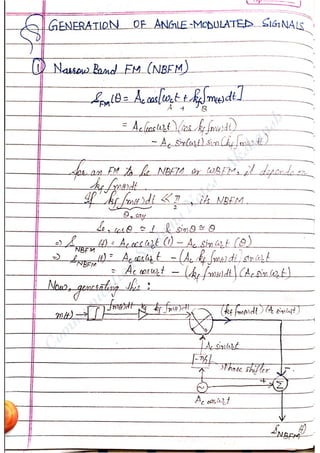 GENERATION OF ANGLE-MODULATED SIGNALS
① Narrow Band FM (NBFM)
S_FM(t) = A_c cos[ω_c t + k_f ∫m(t)dt]
A + B
= A_c (cos ω_c t) (cos k_f ∫m(t)dt)
- A_c sin(ω_c t) sin (k_f ∫m(t)dt)
for an FM to be NBFM or WBFM, it depends on
k_f ∫m(t)dt
If k_f ∫m(t)dt << π/2, its NBFM.
θ, say
So, cos θ ≈ 1 & sin θ ≈ θ
⇒ S_NBFM (t) = A_c cos ω_c t (1) - A_c sin ω_c t (θ)
⇒ S_NBFM (t) = A_c cos ω_c t - (A_c k_f ∫m(t)dt) sin ω_c t
= A_c cos ω_c t - (k_f ∫m(t)dt) (A_c sin ω_c t)
Now, generating this :
m(t) → ∫ ∫m(t)dt k_f k_f ∫m(t)dt (k_f ∫m(t)dt) (A_c sin ω_c t)
A_c sin ω_c t
-π/2 Phase shifter
- + Σ
~
A_c cos ω_c t
S_NBFM(t)